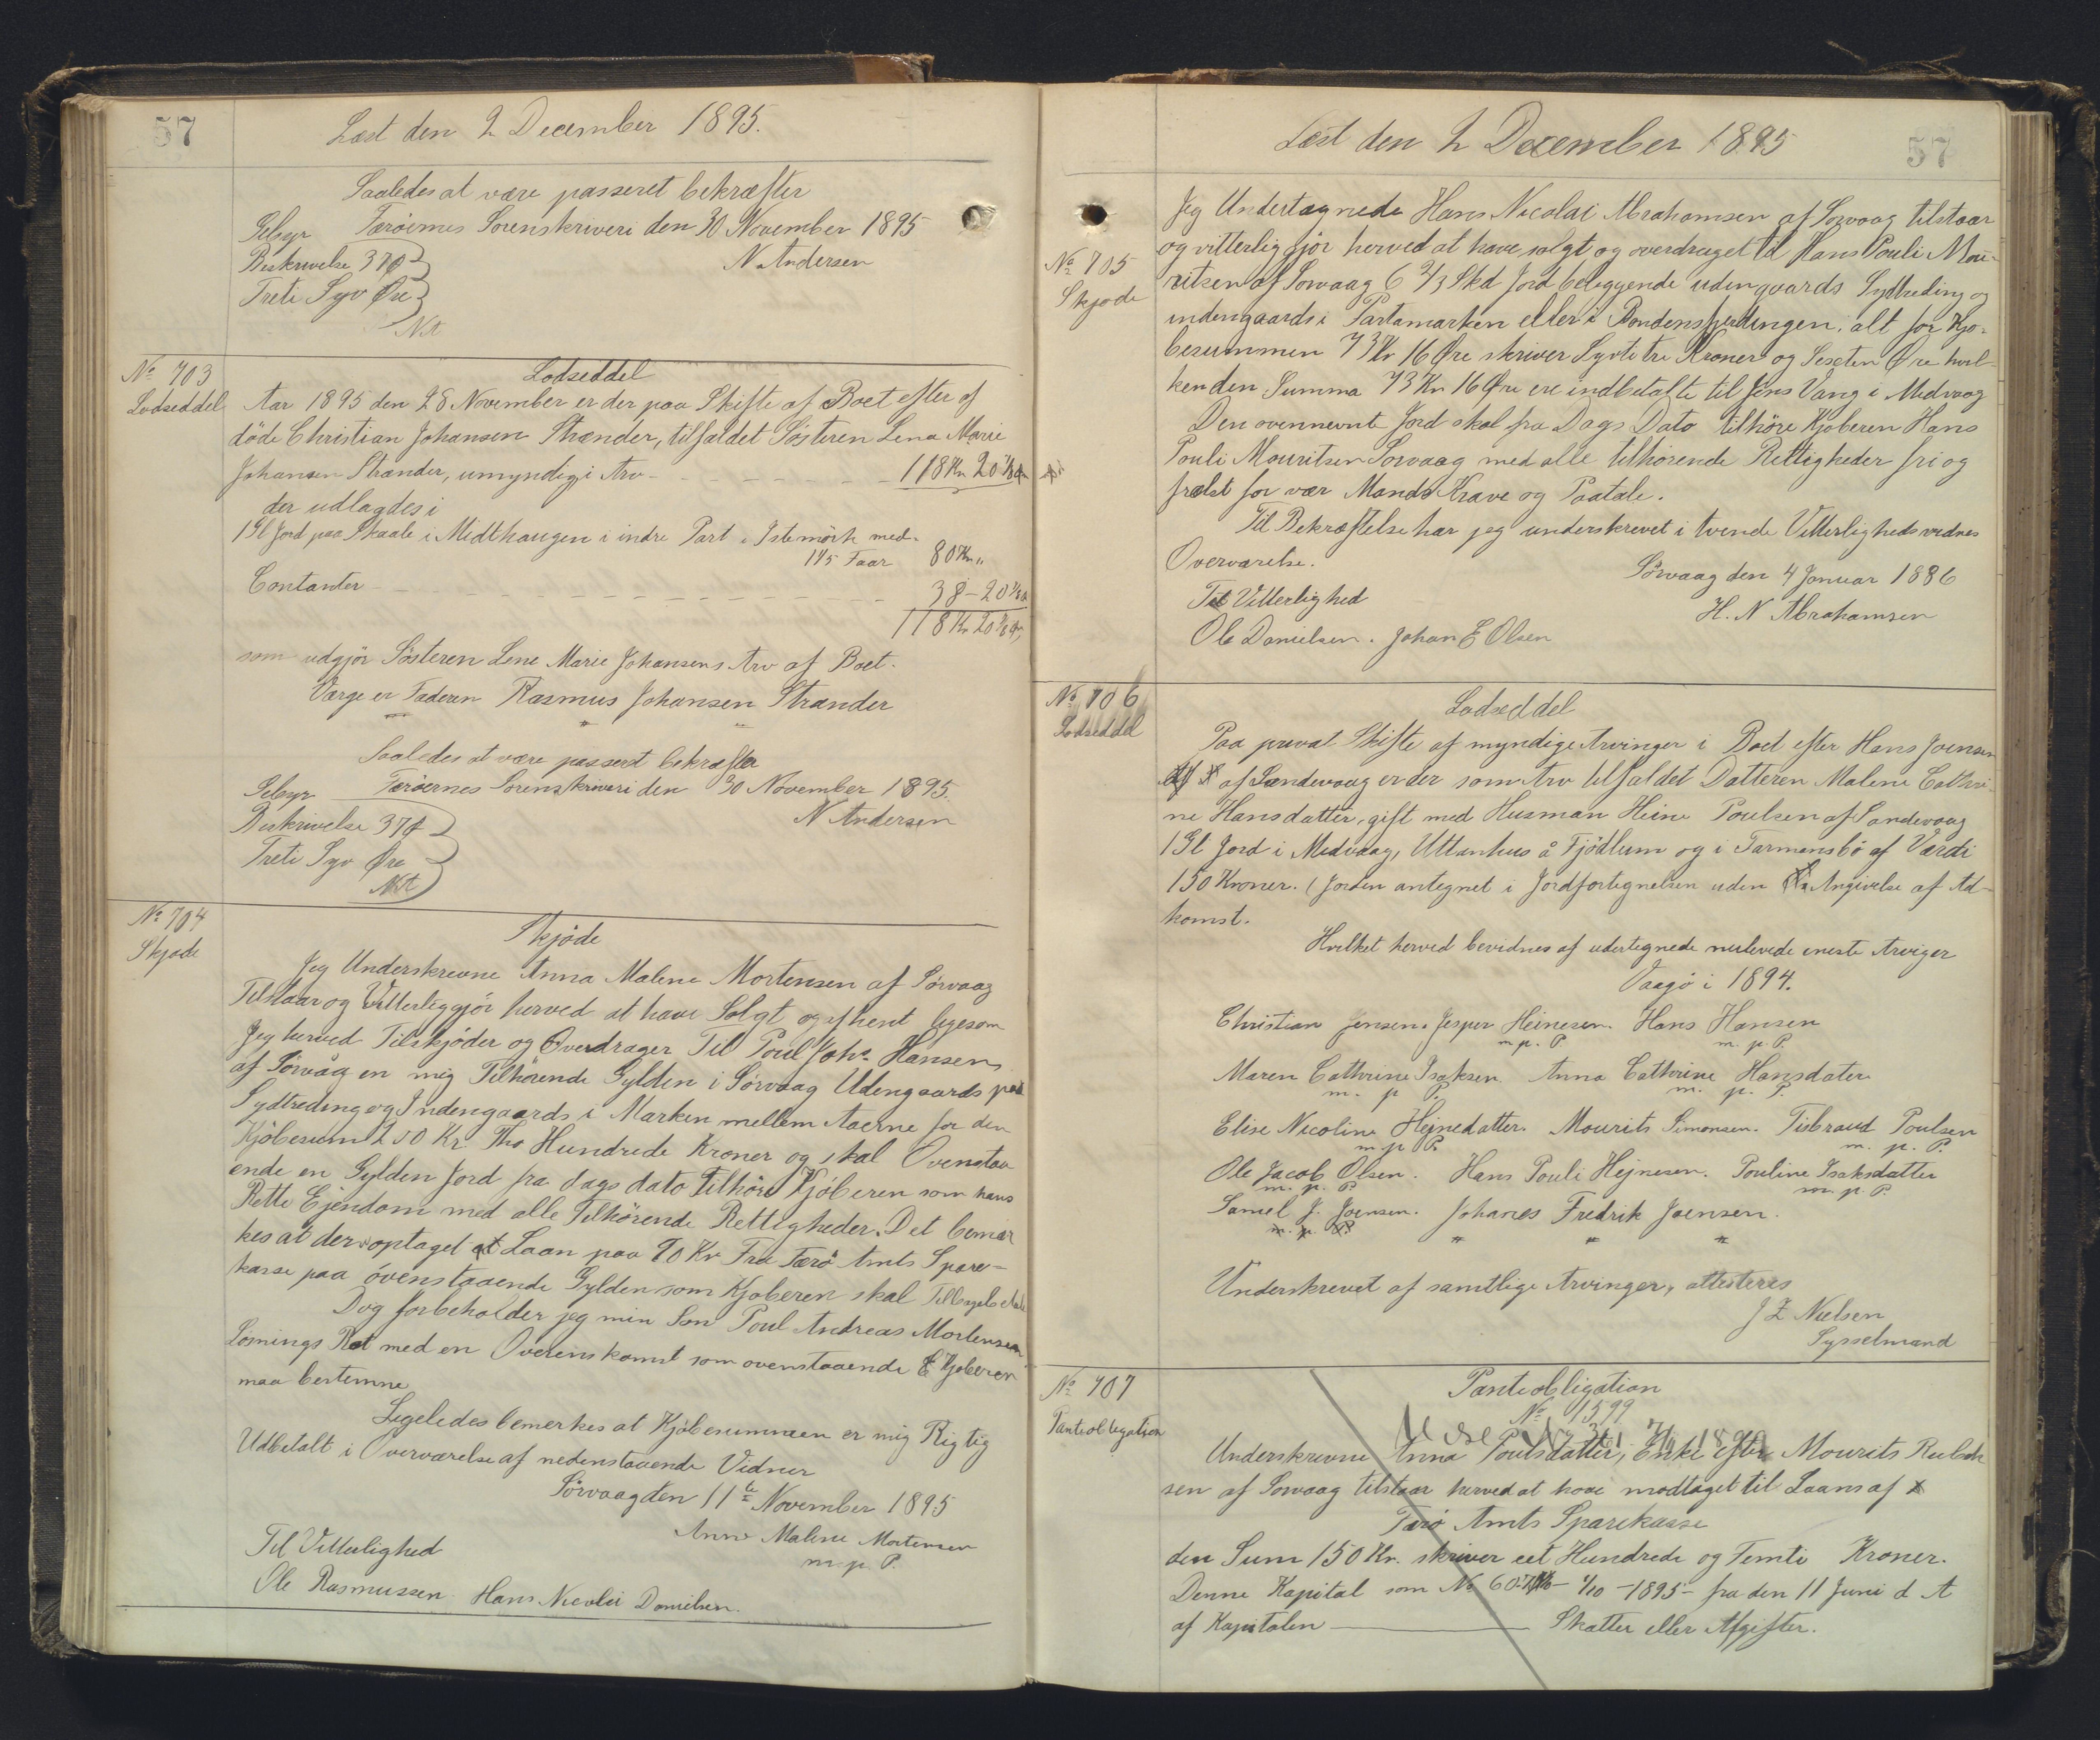 57
Læst den 2 December 1895.
Saaledes at være passeret bekræfter
Gebyr Færöernes Sorenskriveri den 30 November 1895
Beskrivelse 37 Ø N Andersen
Treti Syv Øre
NA
No 703
Lodseddel
Lodseddel
Aar 1895 den 28 November er der paa Skifte af Boet efter af
döde Christian Johansen Strænder, tilfaldet Sösteren Lena Marie
Johansen Strænder, umyndig, i Arv - - - - - - 118 Kr 20
der udlagdes i
1 Gl Jord paa Skaale i Midthaugen i indre Part med
Faar 80 Kr "
Contanter - - - - - - - - - - - 38 - 20
118 Kr 20
som udgjör Sösteren Lene Marie Johansens Arv af Boet.
Værge er Faderen Rasmus Johansen Strænder
Saaledes at være passeret bekræfter
Gebyr Færöernes Sorenskriveri den 30 November 1895.
Beskrivelse 37 Ø N Andersen
Treti Syv Øre
NA
No 704
Skjøde
Skjöde
Jeg Underskrevne Anna Malene Mortensen af Sörvaag
Tilstaar og Vitterliggjör herved at have Solgt og afhent ligesom
Jeg herved Tilskjöder og Overdrager Til Poul Johs Hansen
af Sörvåg en mig Tilhörende Gylden i Sörvaag Udengaards paa
Sydtreding og Indengaards i Marken mellem Aaerne for den
Kjöbesum 200 Kr. Tho Hundrede Kroner og skal Ovenstaa
ende en Gylden Jord fra dags dato Tilhöre Kjöberen som hans
Rette Ejendom med alle Tilhörende Rettigheder. Det bemær
kes at der optaget et Laan paa 90 Kr Fra Færö Amts Spare=
kasse paa övenstaaende Gylden som Kjøberen skal
Dog forbeholder jeg min Søn Poul Andreas Mortensen
Løsnings Ret med en Overenskomst som ovenstaaende Kjøberen
maa bestemme
Ligeledes bemerkes at Kjöbesummen er mig Rigtig
Udbetalt i Overværelse af nedenstaaende Vidner
Sörvaag den 11te November 1895
Anna Malene Mortensen
Til Vitterlighed m. p. P.
Ole Rasmussen Hans Nicolai Danielsen.
Læst den 2 December 1895
57
No 705
Skjøde
Jeg Undertegnede Hans Nicolai Abrahamsen af Sorvaag tilstaar
og vitterliggjör herved at have solgt og overdraget til Hans Pouli Mou-
ritsen af Sorvaag 6 2/3 Skd Jord beliggende udengaards Sydtreding og
indengaards i Partamarken eller i Bondensfjerdingen, alt for Kjø-
besummen 73 Kr 16 Øre skriver Syvti tre Kroner og Sexten Øre hvil-
ken den Summa 73 Kr 16 Øre ere indbetalte til Jens Vang i Midvaag
Den ovennevnte Jord skal fra Dags Dato tilhöre Kjøberen Hans
Pouli Mouritsen Sorvaag med alle tilhørende Rettigheder fri og
frælst for vær Mands Krave og Paatale.
Til Bekræftelse har jeg underskrevet i tvende Vitterligheds vidnes
Overværelse.
Sörvaag den 4 Januar 1886
Til Vitterlighed H. N Abrahamsen
Ole Danielsen. Johan E Olsen
No 706
Lodseddel
Lodseddel
Paa privat Skifte af myndige Arvinger i Boet efter Hans Joensen
af Sandevaag er der som Arv tilfaldet Datteren Malene Cathri-
ne Hansdatter, gift med Husman Heine Poulsen af Sandevaag
1 Gl Jord i Midvaag, Uttanhus å Fjödlum og i Tarmansbö af Værdi
150 Kroner. (Jorden antegnet i Jordfortegnelsen uden Angivelse af Ad-
komst.
Hvilket herved bevidnes af udertegnede nulevede eneste Arviger
Vaagö i 1894.
Christian Jensen. Jesper Heinesen. Hans Hansen
m. p. P. m. p. P.
Maren Cathrine Isaksen. Anna Cathrine Hansdater
m. p. P. m. p. P.
Elise Nicoline Hejnedatter. Mourits Simonsen. Poulsen
m. p. P. m. p. P.
Ole Jacob Olsen. Hans Pouli Hejnesen. Pouline Isaksdatter
m. p. P. m. p. P.
Samel J. Joensen. Johanes Fredrik Joensen.
m. p. P. " " "
Underskrevet af samtlige Arvinger, attesteres
J Z Nielsen
Sysselmand
No 707
Panteobligation
Panteobligation
No 1599
Underskrevne Anna Poulsdatter, Enke efter Mourits
sen af Sorvaag tilstaar herved at have modtaget til Laans af
Færö Amts Sparekasse
den Sum 150 Kr. skriver eet Hundrede og Femti Kroner.
Denne Kapital som No - 1895 - fra den 11 Juni d A
af Kapitalen ——— Skatter eller Afgifter.